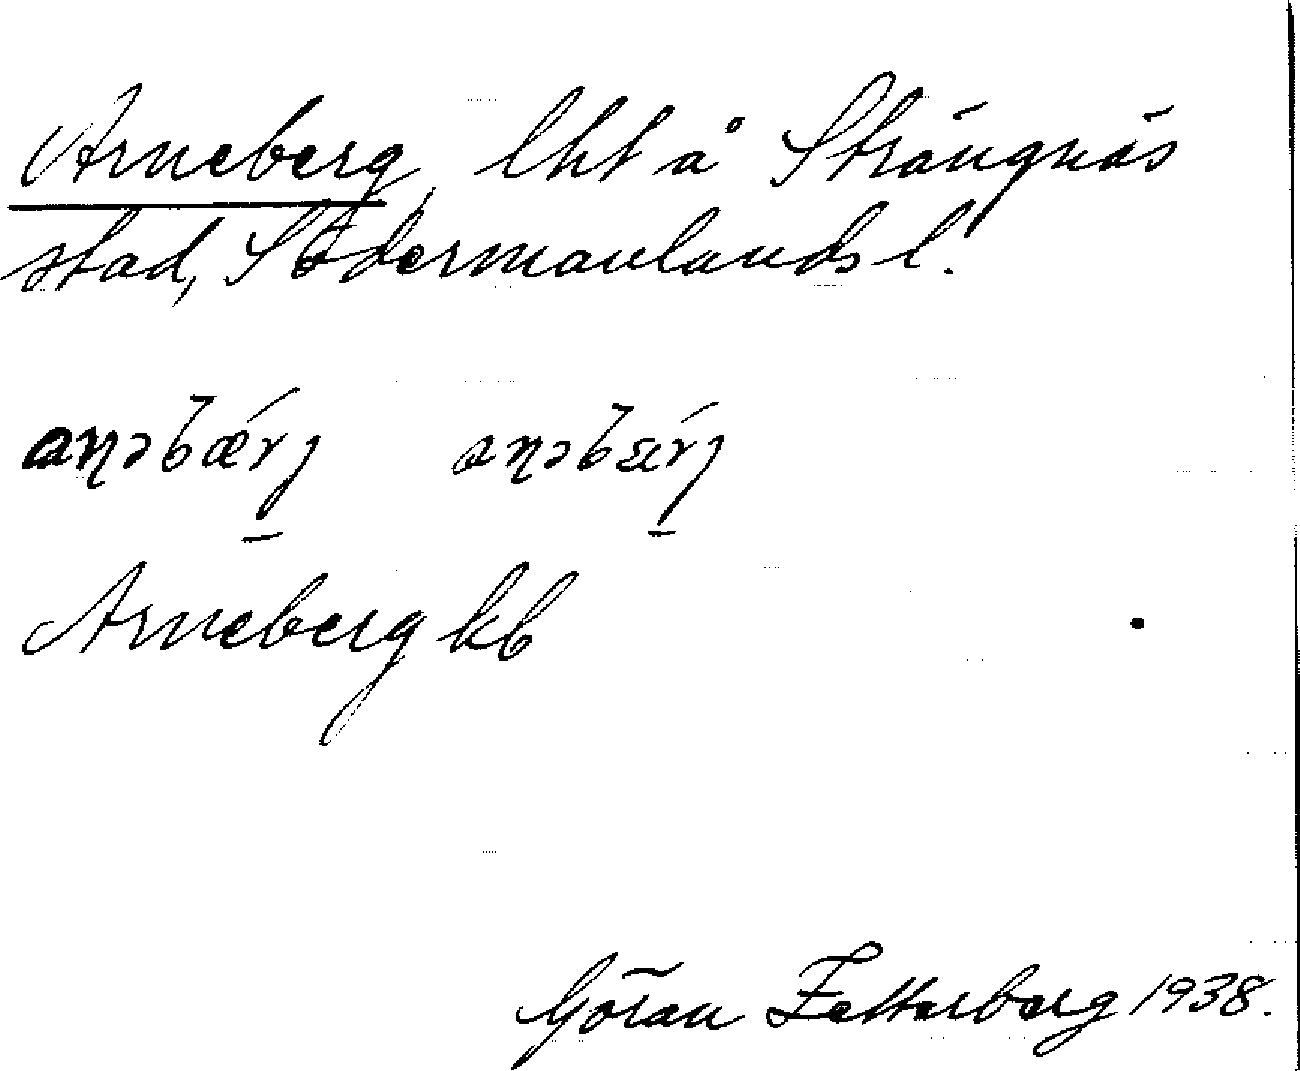 Arneberg, lht å Strängnäs
stad, Södermanlands l.
aɳəbǽrj aɳəbɛ́rj
Arneberg kb
Göran Zetterberg 1938.